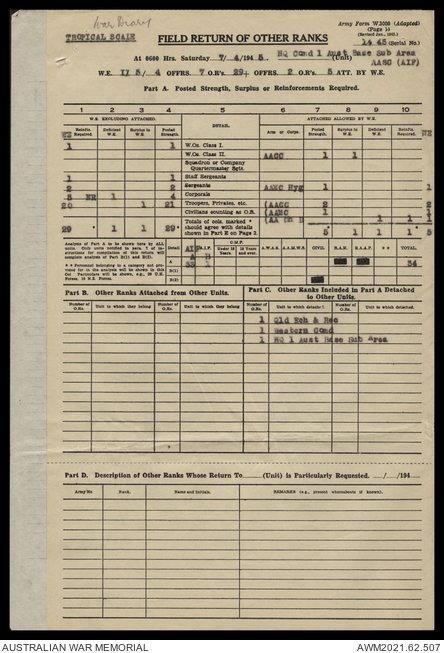 War Diary
Army Form W.3009 (Adapted)
(Page 1)
(Revised Jan., 1943.)
TROPICAL SCALE
FIELD RETURN OF OTHER RANKS
14 45 (Serial No.)
At 0600 Hrs. Saturday 7/4/1945. HQ Comd 1 Aust Base Sub Area (Unit)
AASC (AIF)
W.E. II 5/4 OFFRS. 7 O.R's. 29+ OFFRS. 2 O.R's. 5 ATT. BY W.E.
Part A. Posted Strength, Surplus or Reinforcements Required.
1 2 3 4 5 6 7 8 9 10
W.E. EXCLUDING ATTACHED. ATTACHED ALLOWED BY W.E.
WE Reinfts. Required. Deficient W.E. Surplus to W.E. Posted Strength. DETAIL. Arms or Corps. Posted Strength. Deficient W.E. Surplus to W.E. Reinfts. Required.
1 1 W.Os. Class I.
W.Os. Class II. AACC 1 1
Squadron or Company Quartermaster Sgts.
1 1 Staff Sergeants
2 2 Sergeants AAMC Hyg 1 1
5 NR 1 4 Corporals
20 1 21 Troopers, Privates, etc. (AACC 2 2
Civilians counting as O.R. (AAMC 1 1
29 * 1 1 29* Totals of cols. marked * should agree with details shown in Part E on Page 2. 5 1 1 * 5
Analysis of Part A to be shown here by all arms.
Detail A.I.F. C.M.F. Under 19 Years. 19 Years and over. A.W.A.S. A.A.M.W.S. CIVIL R.A.N. R.A.A.F. * * TOTAL
A 34
B(1)
B(2)
Part B. Other Ranks Attached from Other Units.
Part C. Other Ranks Included in Part A Detached to Other Units.
Number of O.Rs. Unit to which they belong Number of O.Rs. Unit to which they belong Number of O.Rs. Unit to which detached. Number of O.Rs. Unit to which detached.
1 Qld Ech & Rec
1 Western Comd
1 HQ 1 Aust Base Sub Area
Part D. Description of Other Ranks Whose Return To (Unit) is Particularly Requested. / /194
Army No Rank. Name and Initials. REMARKS (e.g., present whereabouts if known).
AUSTRALIAN WAR MEMORIAL AWM2021.62.507